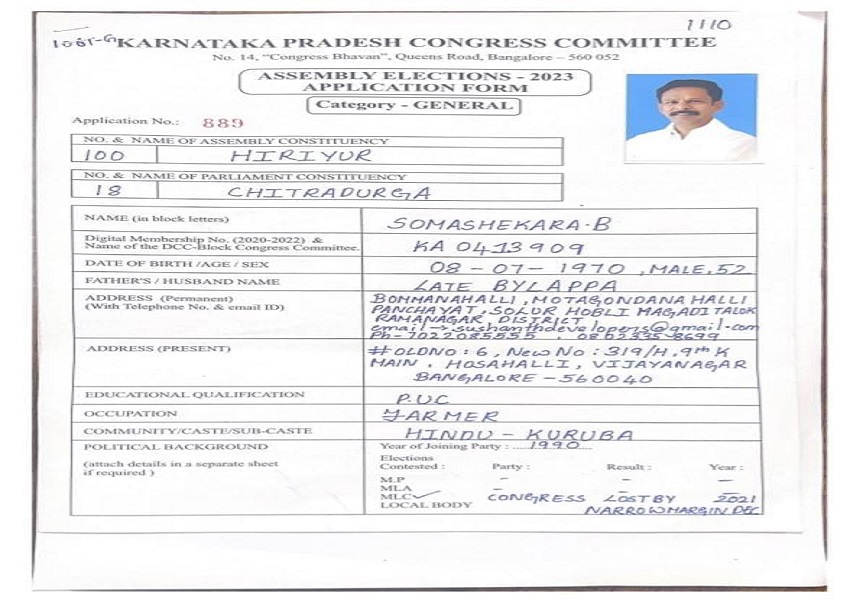 1110
1081-G
KARNATAKA PRADESH CONGRESS COMMITTEE
No. 14, "Congress Bhavan", Queens Road, Bangalore – 560 052
ASSEMBLY ELECTIONS - 2023
APPLICATION FORM
Category - GENERAL
Application No.: 889
NO. & NAME OF ASSEMBLY CONSTITUENCY
100 HIRIYUR
NO. & NAME OF PARLIAMENT CONSTITUENCY
18 CHITRADURGA
NAME (in block letters) SOMASHEKARA.B
Digital Membership No. (2020-2022) &
Name of the DCC-Block Congress Committee. KA 0413909
DATE OF BIRTH /AGE / SEX 08-07-1970, MALE, 52
FATHER'S / HUSBAND NAME LATE BYLAPPA
ADDRESS (Permanent)
(With Telephone No. & email ID)
BOMMANAHALLI, MOTAGONDANAHALLI
PANCHAYAT, SOLUR HOBLI MAGADI TALOK
RAMANAGAR DISTRICT
email → sushanthdevelopers@gmail.com
Ph-7022085555, 08023358699
ADDRESS (PRESENT) # OLDNO: 6, New No: 319/H, 9th K
MAIN, HOSAHALLI, VIJAYANAGAR
BANGALORE-560040
EDUCATIONAL QUALIFICATION P.UC
OCCUPATION FARMER
COMMUNITY/CASTE/SUB-CASTE HINDU - KURUBA
POLITICAL BACKGROUND
(attach details in a separate sheet
if required )
Year of Joining Party : ....1990....
Elections
Contested : Party : Result : Year :
M.P - - -
MLA - - -
MLC ✓ CONGRESS LOST BY 2021
LOCAL BODY NARROW MARGIN DEC